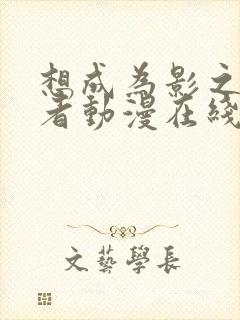 想成為影之
者動漫在綫
文藝學長